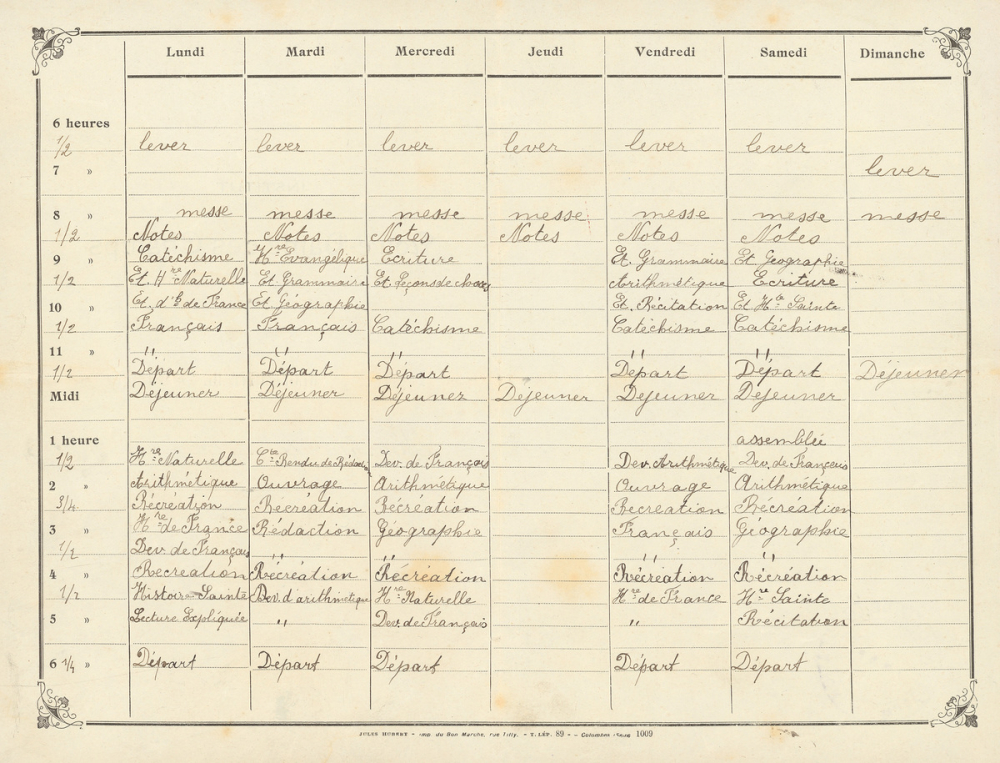 Lundi Mardi Mercredi Jeudi Vendredi Samedi Dimanche
6 heures
1/2 lever lever lever lever lever lever
7 » lever
8 » messe messe messe messe messe messe messe
1/2 Notes Notes Notes Notes Notes Notes
9 » Catéchisme H^re Evangélique Ecriture Et. Grammaire Et Geographie
1/2 Et. H^re Naturelle Et Grammaire Et. leçons de choses Arithmétique Ecriture
10 » Et. d'H^re de France Et Géographie Et. Récitation Et H^re Sainte
1/2 Français Français Catéchisme Catéchisme Catéchisme
11 » " " " " "
1/2 Départ Départ Départ Départ Départ Déjeuner
Midi Déjeuner Déjeuner Déjeuner Déjeuner Dejeuner Dejeuner
1 heure assemblée
1/2 H^re Naturelle C^te Rendu de Rédact Dev. de Français Dev. Arithmétique Dev. de Français
2 » Arithmétique Ouvrage Arithmétique Ouvrage Arithmétique
3/4 Récréation Récréation Récréation Recreation Récréation
3 » H^re de France Rédaction Géographie Français Géographie
1/2 Dev. de Français " " " "
4 » Recreation Récréation Récréation Récréation Récréation
1/2 Histoire Sainte Dev. d'arithmetique H^re Naturelle H^re de France H^re Sainte
5 » Lecture Expliquée " Dev. de Français " Récitation
6 1/4 » Départ Départ Départ Départ Départ
JULES HUBERT - Imp. du Bon Marché, rue - T. LÉP. 89 - - Colombes (Seine) 1009